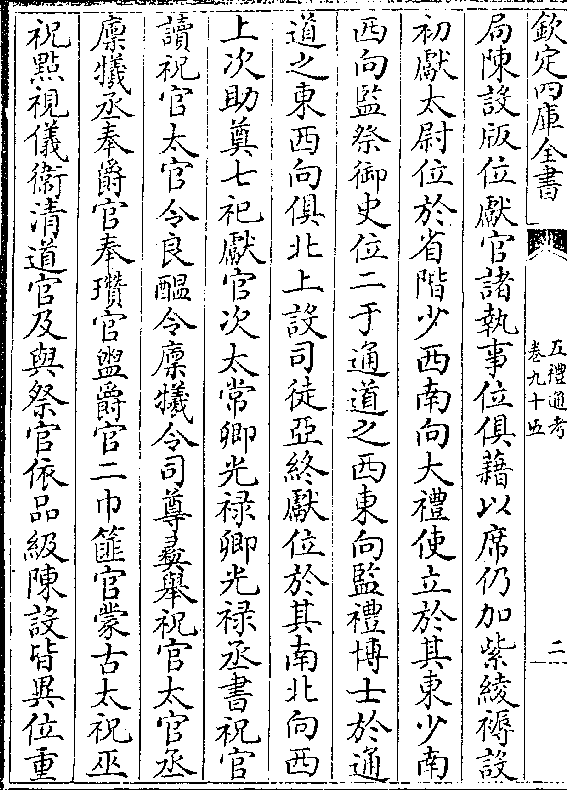 欽定四庫全書
五禮通考
卷九十五
二
局陳設版位獻官諸執事位俱藉以席仍加紫綾褥設
初獻太尉位於省階少西南向大禮使立於其東少南
西向監祭御史位二于通道之西東向監禮博士於通
道之東西向俱北上設司徒亞終獻位於其南北向西
上次助奠七祀獻官次太常卿光禄卿光禄丞書祝官
讀祝官太官令良醖令廪犧令司尊彛舉祝官太官丞
廪犧丞奉爵官奉瓚官盥爵官二巾篚官蒙古太祝巫
祝點視儀衛清道官及與祭官依品級陳設皆異位重